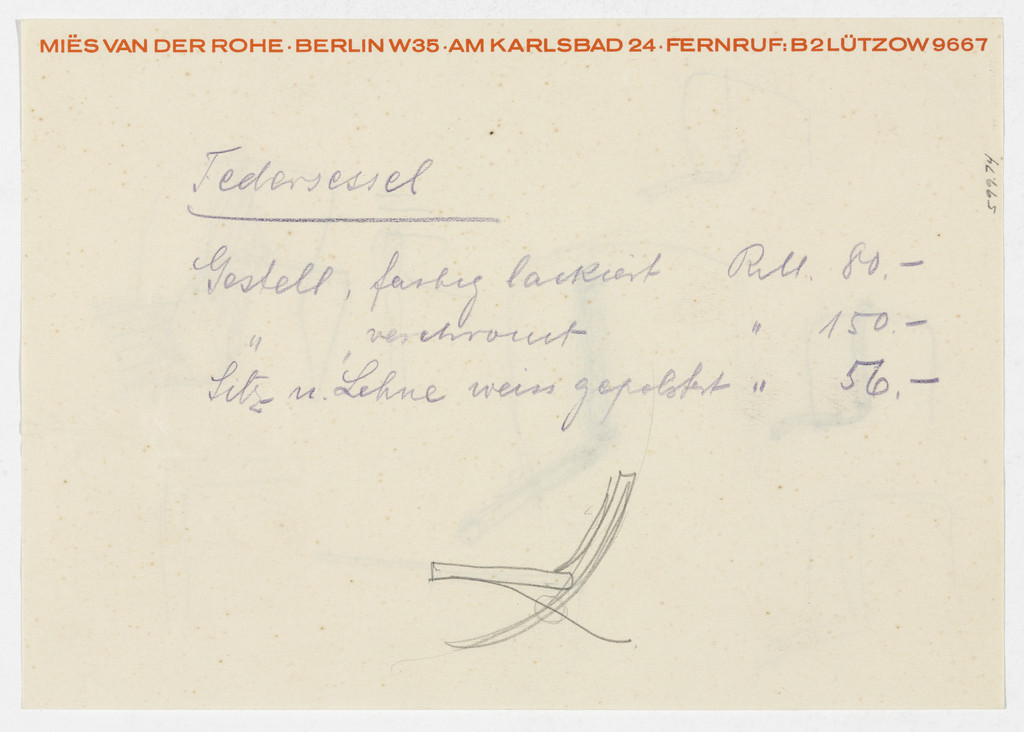 MIËS VAN DER ROHE · BERLIN W35 · AM KARLSBAD 24 · FERNRUF: B2 LÜTZOW 9667
Federsessel
Gestell, farbig lackiert RM. 80.–
" , verchromt " 150.–
Sitz u. Lehne weiss gepolstert " 56.–